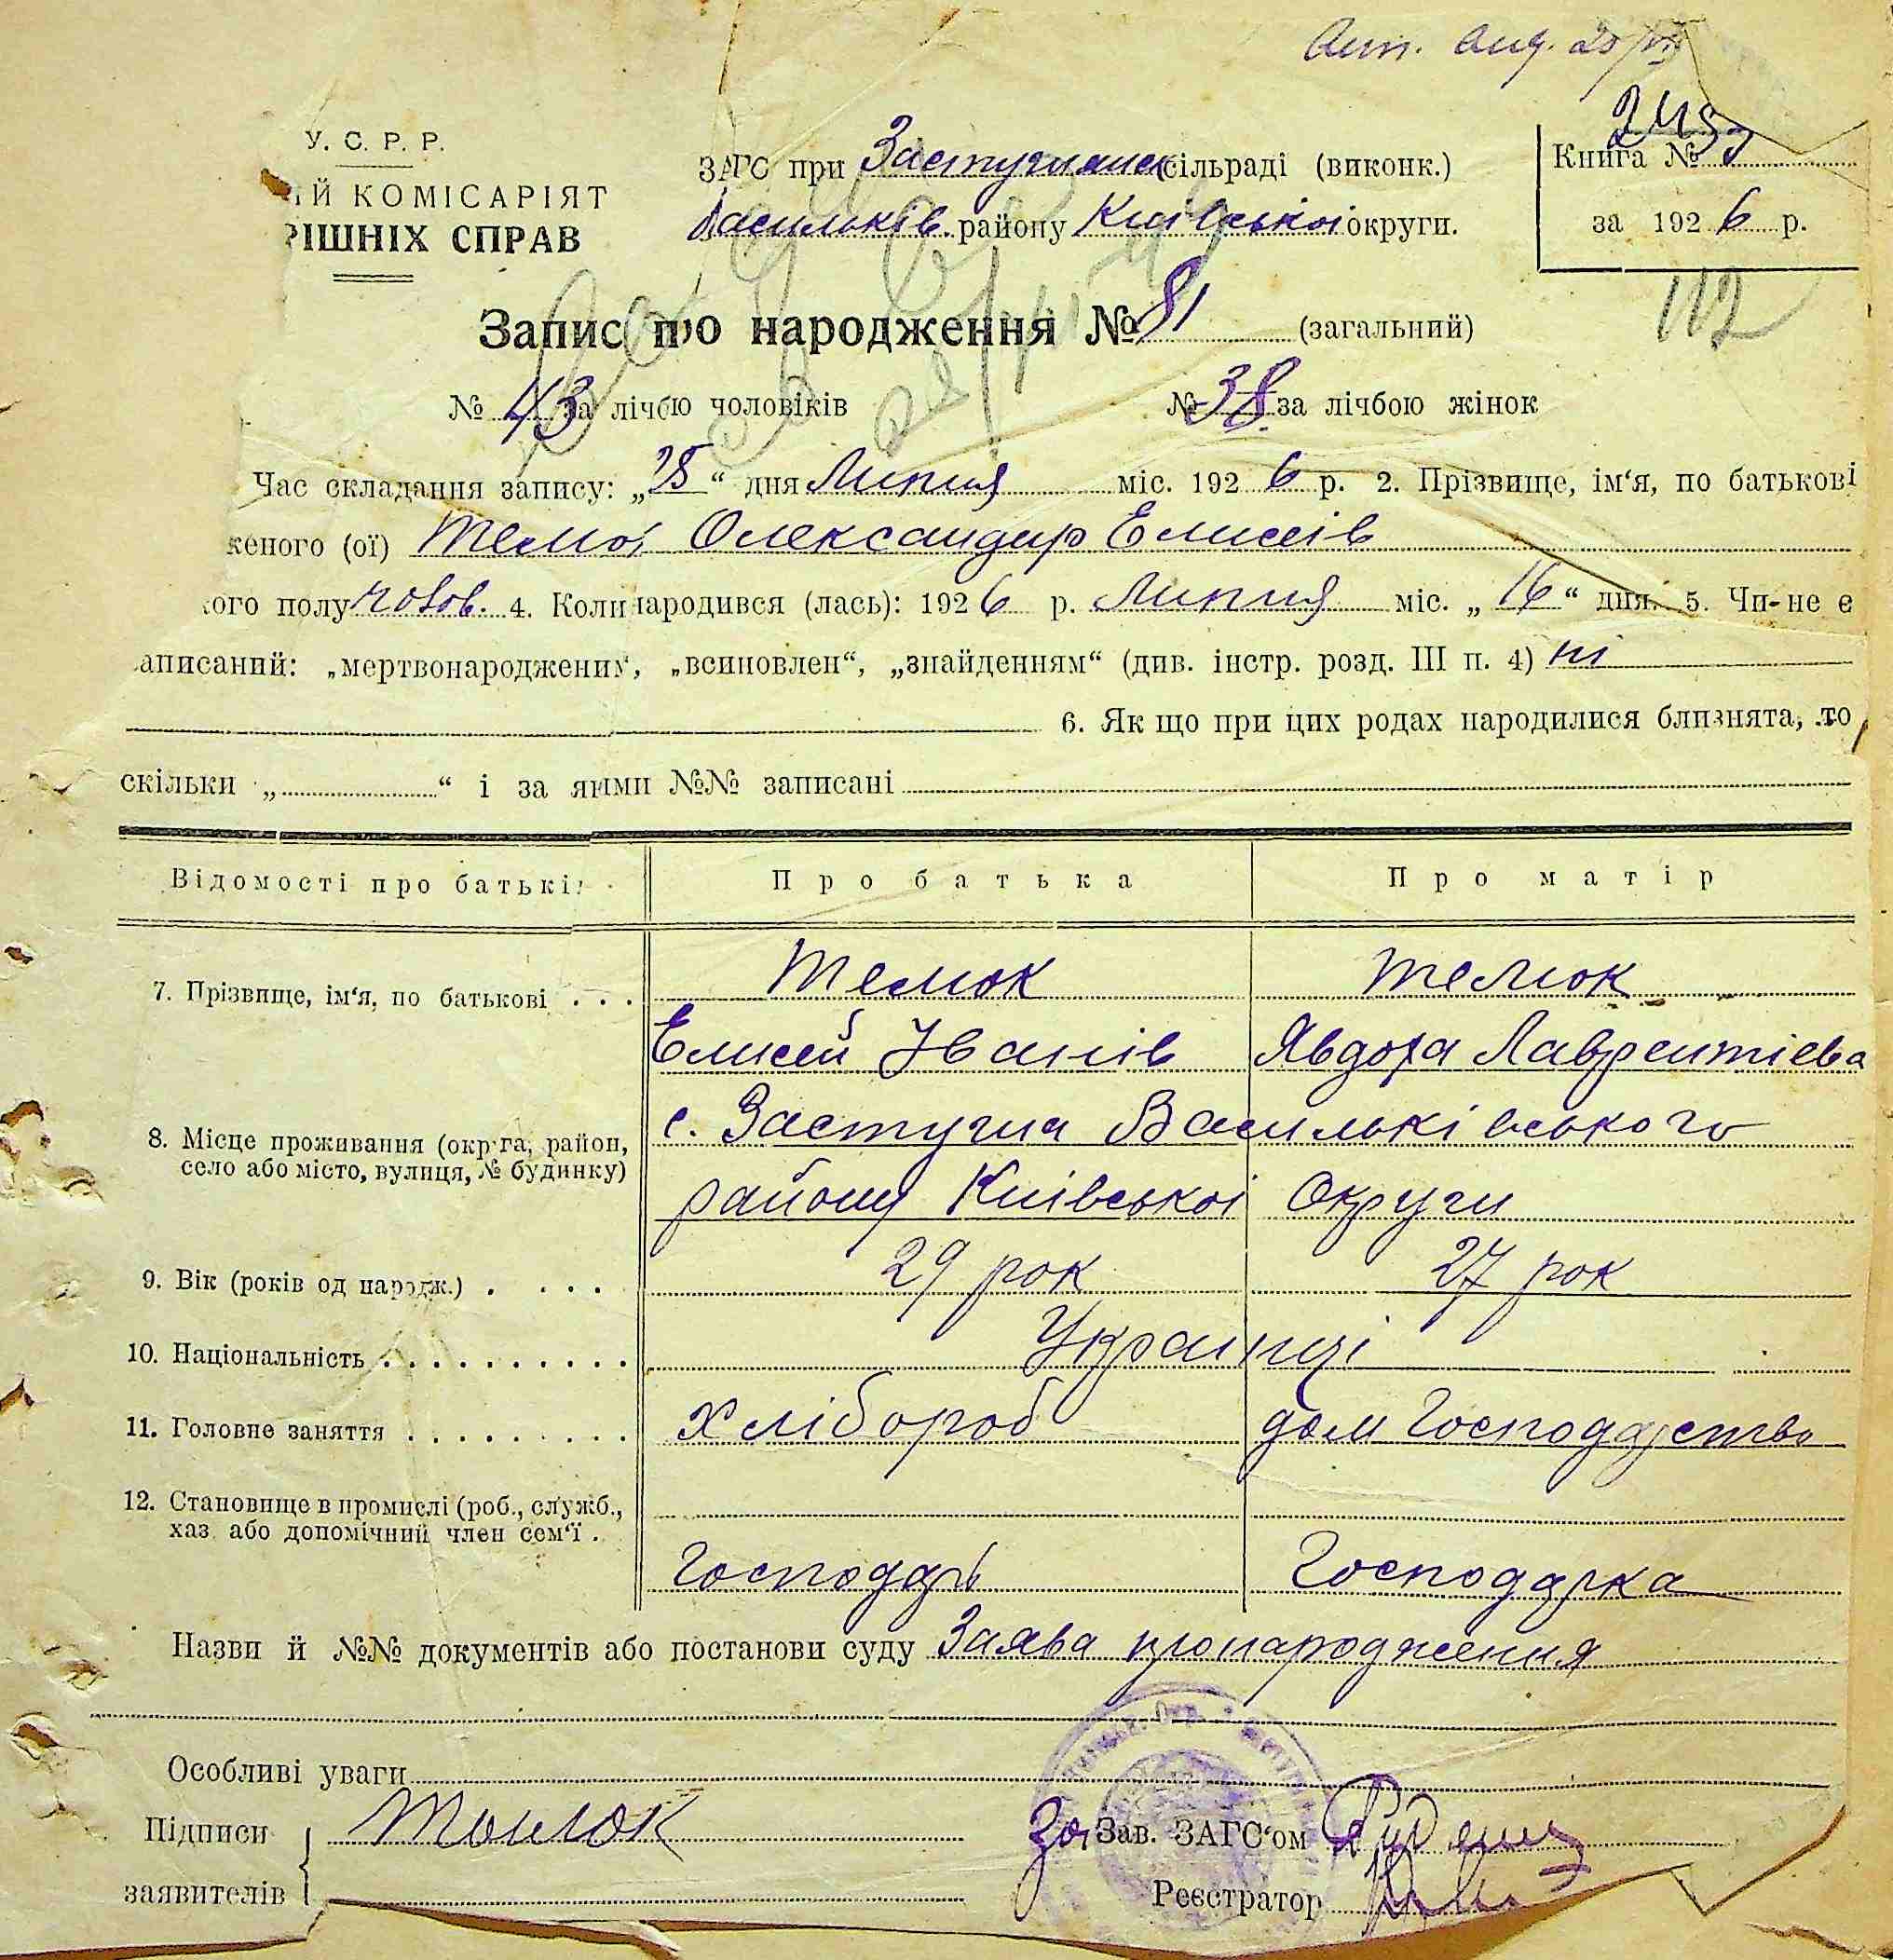 У. С. Р. Р.
ІЙ КОМІСАРІЯТ
РІШНІХ СПРАВ
ЗАГС при Застугнянск сільраді (виконк.)
Васильків. району Київської округи.
Книга №
за 1926 р.
112
Запис про народження № 81 (загальний)
№ 43 за лічбою чоловіків № 38 за лічбою жінок
Час складання запису: „25“ дня Липня міс. 1926 р. 2. Прізвище, ім‘я, по батькові
женого (ої) Олександир Елисеїв
ого полу чолов. 4. Коли народився (лась): 1926 р. Липня міс. „16“ дня. 5. Чи-не є
аписаний: „мертвонародженим“, „всиновлен“, „знайденням“ (див. інстр. розд. III п. 4) ні
6. Як що при цих родах народилися близнята, то
скільки „ “ і за якими №№ записані
Відомості про батьків Про батька Про матір
7. Прізвище, ім‘я, по батькові Телюк Телюк
Елисей Іванів Явдоха Лаврентієва
8. Місце проживання (округа, район, село або місто, вулиця, № будинку) с. Застугна Васильківського
району Київської Округи
9. Вік (років од народж.) 29 рок 27 рок
10. Національність Українці
11. Головне заняття хлібороб дом Господарство
12. Становище в промислі (роб., служб.,
хаз. або допомічний член сем‘ї
Господарь Господарка
Назви й №№ документів або постанови суду Заява про народження
Особливі уваги
Підписи
заявителів
За Зав. ЗАГС‘ом
Реєстратор